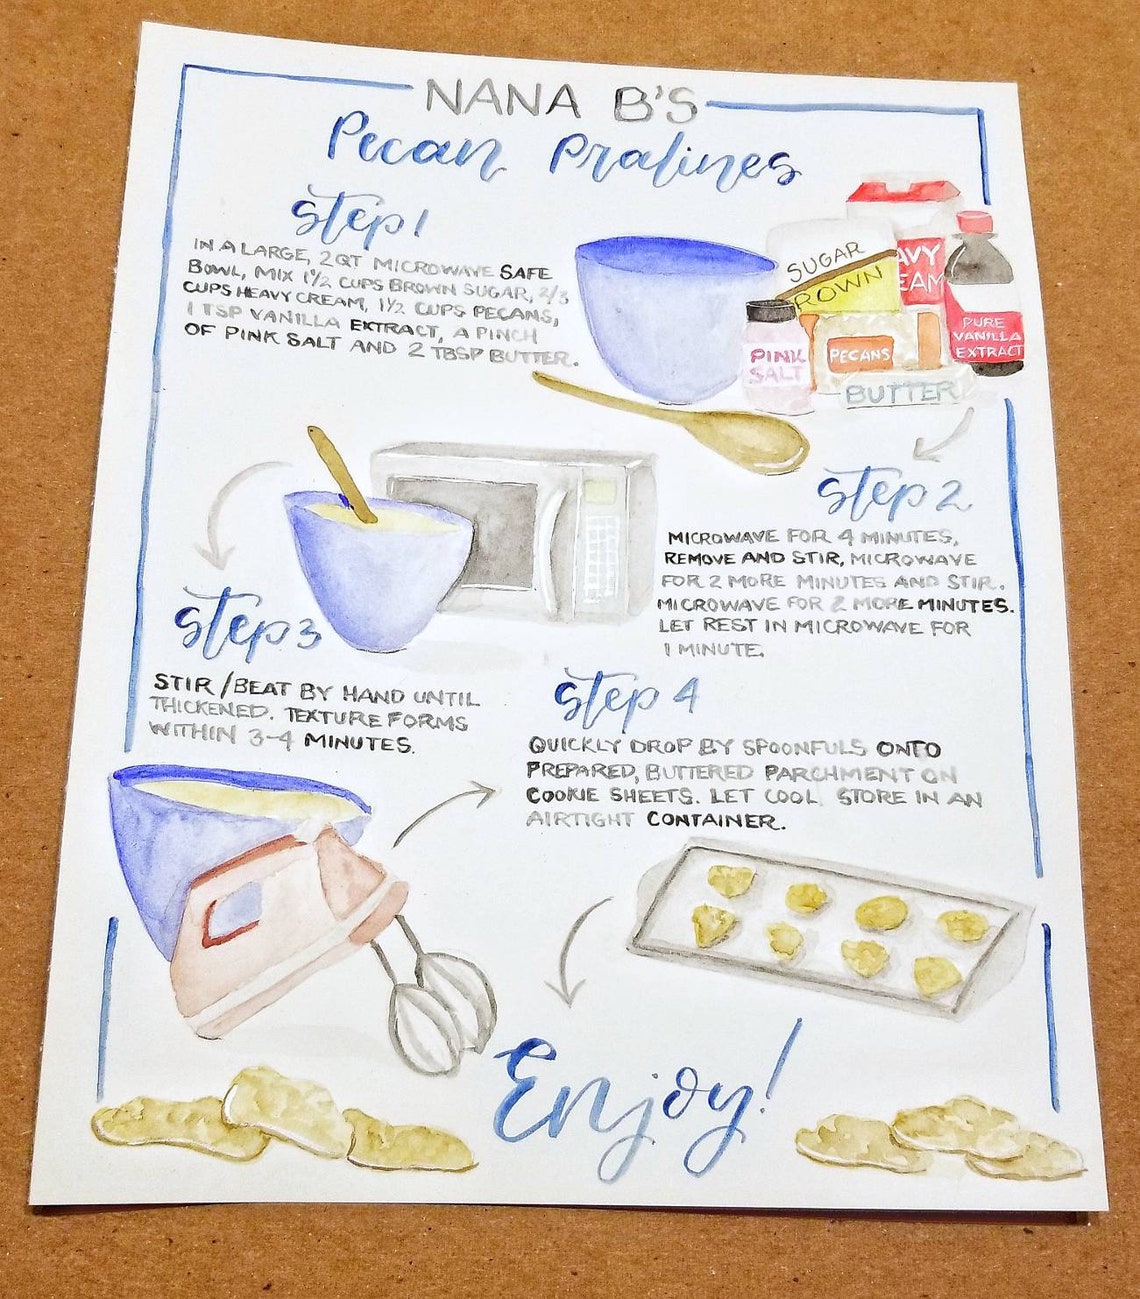 NANA B'S
Pecan Pralines
Step 1
IN A LARGE, 2QT MICROWAVE SAFE
BOWL, MIX 1½ CUPS BROWN SUGAR, 2/3
CUPS HEAVY CREAM, 1½ CUPS PECANS,
1 TSP VANILLA EXTRACT, A PINCH
OF PINK SALT AND 2 TBSP BUTTER.
SUGAR
ROWN
AVY
EAM
PURE
VANILLA
EXTRACT
PINK
SALT
PECANS
BUTTER
Step 2
MICROWAVE FOR 4 MINUTES,
REMOVE AND STIR, MICROWAVE
FOR 2 MORE MINUTES AND STIR.
MICROWAVE FOR 2 MORE MINUTES.
LET REST IN MICROWAVE FOR
1 MINUTE.
Step 3
STIR/BEAT BY HAND UNTIL
THICKENED. TEXTURE FORMS
WITHIN 3-4 MINUTES.
Step 4
QUICKLY DROP BY SPOONFULS ONTO
PREPARED, BUTTERED PARCHMENT ON
COOKIE SHEETS. LET COOL. STORE IN AN
AIRTIGHT CONTAINER.
Enjoy!